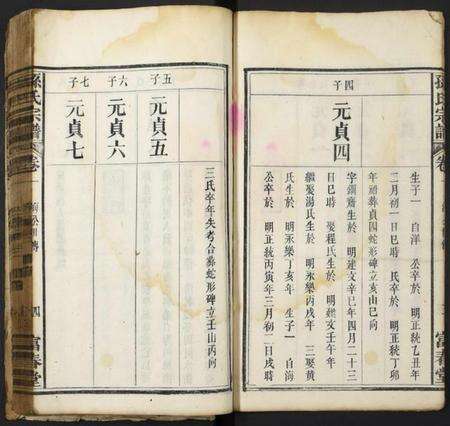 孫氏宗譜 卷
富春堂
生子一 自洋 公卒於 明正統乙丑年
二月初一日巳時 氏卒於 明正統丁卯
年祔葬貞四蛇形碑立亥山巳向
四子
元貞四
字 齋生於 明建文辛巳年四月二十三
日巳時 娶程氏生於 明建文壬午年
繼娶湯氏生於 明永樂丙戌年 三娶黄
氏生於 明永樂丁亥年 生子一 自海
公卒於 明正統丙寅年三月初二日戌時
三氏卒年失考合葬蛇形碑立壬山丙向
五子
元貞五
六子
元貞六
七子
元貞七
孫氏宗譜 卷一
四
富春堂